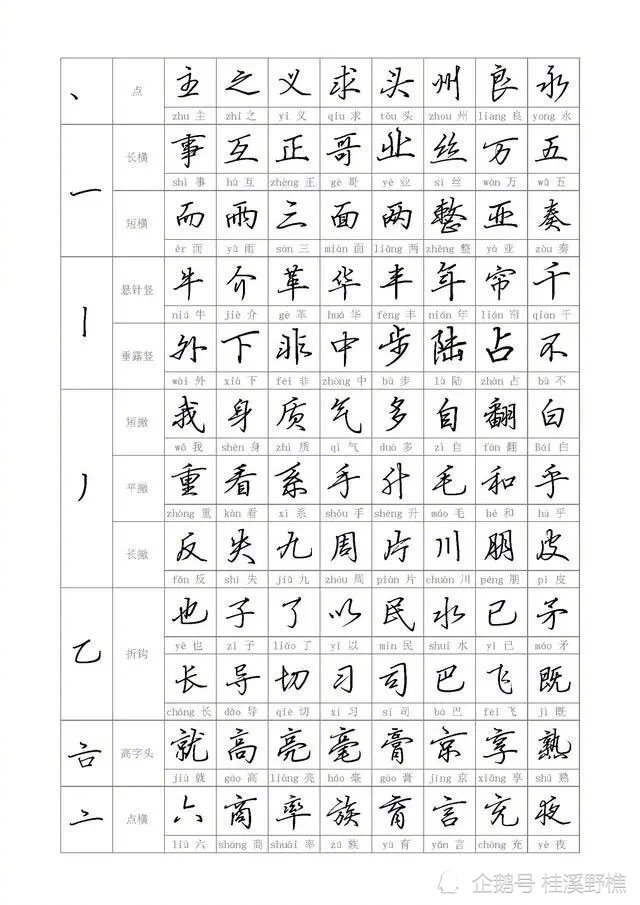 、 点 主 之 义 求 头 州 良 永
zhu 主 zhī 之 yì 义 qiú 求 tóu 头 zhou 州 liang 良 yong 永
一 长横 事 互 正 哥 业 丝 万 五
shì 事 hù 互 zhèng 正 gē 哥 yè 业 sī 丝 wàn 万 wǔ 五
短横 而 雨 三 面 两 整 亚 奏
ér 而 yǔ 雨 sān 三 miàn 面 liǎng 两 zhěng 整 yà 亚 zòu 奏
丨 悬针竖 牛 介 革 华 丰 年 帘 千
niú 牛 jiè 介 gé 革 huá 华 fēng 丰 nián 年 lián 帘 qiān 千
垂露竖 外 下 非 中 步 陆 占 不
wài 外 xià 下 fēi 非 zhōng 中 bù 步 lù 陆 zhàn 占 bù 不
丿 短撇 我 身 质 气 多 自 翻 白
wǒ 我 shēn 身 zhì 质 qì 气 duō 多 zì 自 fān 翻 Bái 白
平撇 重 看 系 手 升 毛 和 乎
zhòng 重 kàn 看 xì 系 shǒu 手 shēng 升 máo 毛 hé 和 hū 乎
长撇 反 失 九 周 片 川 朋 皮
fǎn 反 shī 失 jiǔ 九 zhōu 周 piàn 片 chuān 川 péng 朋 pí 皮
乙 折钩 也 子 了 以 民 水 已 矛
yě 也 zǐ 子 liǎo 了 yǐ 以 mín 民 shuǐ 水 yǐ 已 máo 矛
长 导 切 习 司 巴 飞 既
cháng 长 dǎo 导 qiē 切 xí 习 sī 司 bā 巴 fēi 飞 jì 既
高字头 就 高 亮 毫 膏 京 享 熟
jiù 就 gāo 高 liàng 亮 háo 毫 gāo 膏 jīng 京 xiǎng 享 shú 熟
亠 点横 六 商 率 族 育 言 充 夜
liù 六 shāng 商 shuài 率 zú 族 yù 育 yán 言 chōng 充 yè 夜
企鹅号 桂溪野樵